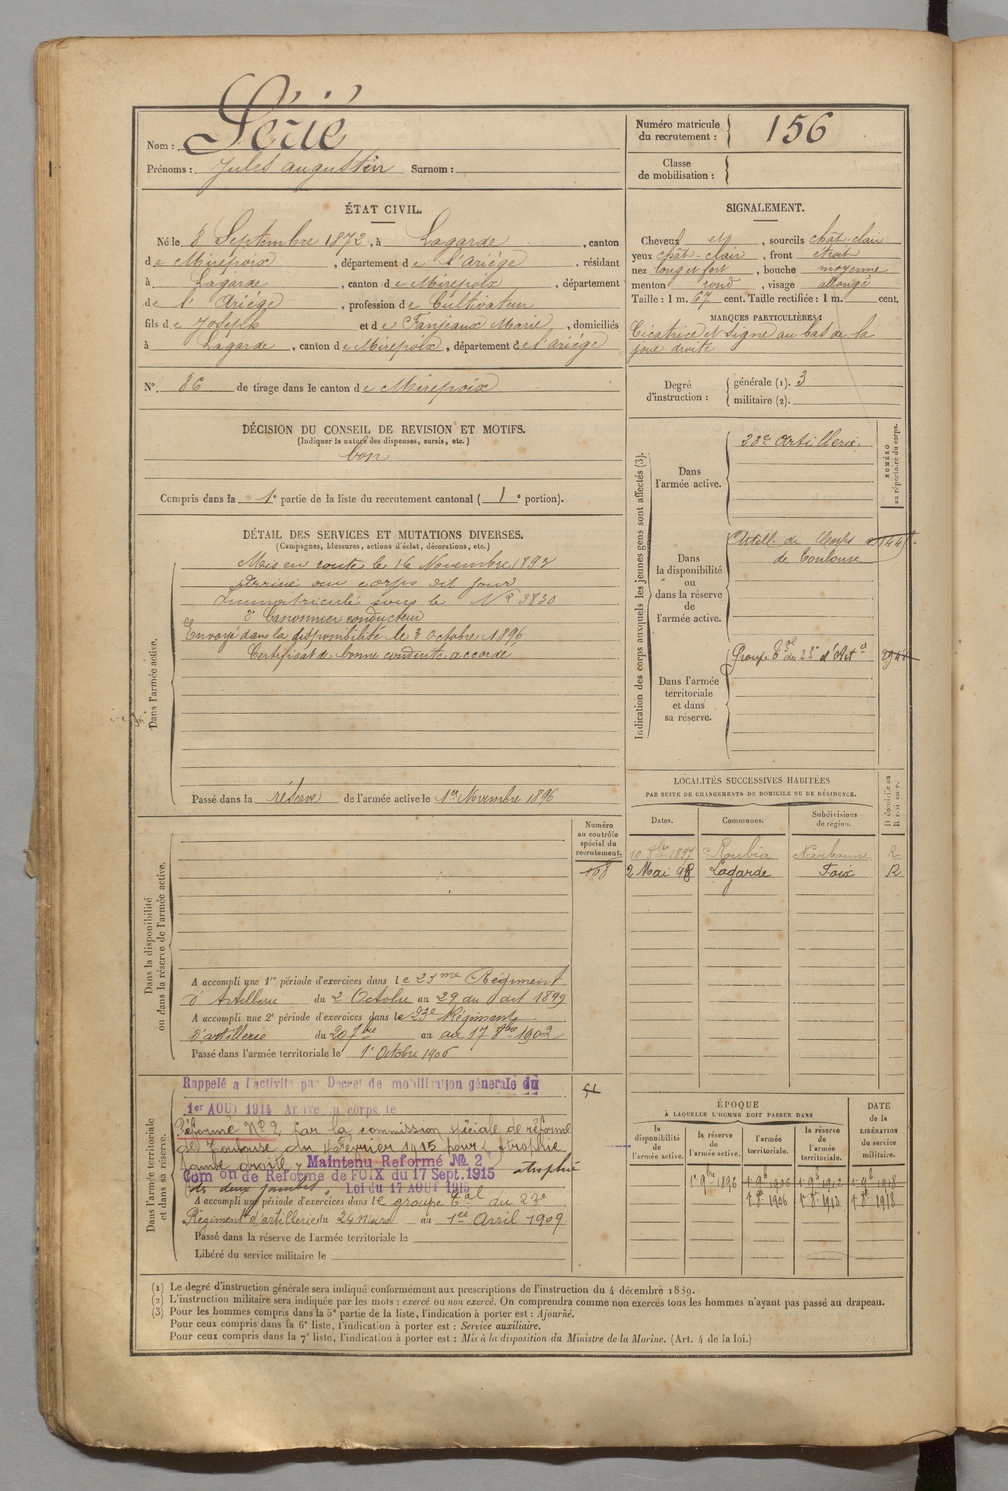 Nom : Sérié
Prénoms : Jules Augustin Surnom :
Numéro matricule du recrutement : 156
Classe de mobilisation :
ÉTAT CIVIL.
Né le 8 Septembre 1872, à Lagarde, canton
de Mirepoix, département de l'Ariège, résidant
à Lagarde, canton de Mirepoix, département
de l'Ariège, profession de Cultivateur
fils de Joseph et de Fanjeaux Marie, domiciliés
à Lagarde, canton de Mirepoix, département de l'ariège
N°. 86 de tirage dans le canton de Mirepoix
DÉCISION DU CONSEIL DE REVISION ET MOTIFS.
(Indiquer la nature des dispenses, sursis, etc.)
bon
Compris dans la 1e partie de la liste du recrutement cantonal ( 1e portion).
SIGNALEMENT.
Cheveux et, sourcils chât-clair
yeux chât-clair, front étroit
nez long et fort, bouche moyenne
menton rond, visage allongé
Taille : 1 m. 67 cent. Taille rectifiée : 1 m. cent.
MARQUES PARTICULIÈRES :
Cicatrice et signe au bas de la
joue droite
Degré d'instruction : générale (1). 3
militaire (2).
DÉTAIL DES SERVICES ET MUTATIONS DIVERSES.
(Campagnes, blessures, actions d'éclat, décorations, etc.)
Dans l'armée active.
Mis en route le 16 Novembre 1893
Arrivé au corps dit jour
Immatriculé sous le N° 3830
2e Canonnier conducteur
Envoyé dans la disponibilité le 3 Octobre 1896
Certificat de bonne conduite accordé
Passé dans la réserve de l'armée active le 1er Novembre 1896
Indication des corps auxquels les jeunes gens sont affectés (3).
NUMÉRO au répertoire du corps.
Dans l'armée active.
23e Artillerie
Dans la disponibilité ou dans la réserve de l'armée active.
Artill. de Corps
de Toulouse
Dans l'armée territoriale et dans sa réserve.
Groupe tal du 23e d'Art ie
LOCALITÉS SUCCESSIVES HABITÉES
PAR SUITE DE CHANGEMENTS DE DOMICILE OU DE RÉSIDENCE.
Dates. Communes. Subdivisions de région. D domicile ou R résidence.
10 1897 Roubia Narbonne R
2 Mai 98 Lagarde Foix R
Dans la disponibilité ou dans la réserve de l'armée active.
Numéro au contrôle spécial du recrutement.
168
A accompli une 1re période d'exercices dans le 23me Régiment
d'Artillerie du 2 Octobre au 29 du dit 1899
A accompli une 2e période d'exercices dans le 23e Régiment
d'artillerie du 20 7bre au 17 8bre 1902
Passé dans l'armée territoriale le 1er Octobre 1906
Dans l'armée territoriale et dans sa réserve.
Rappelé a l'activité par Decret de mobilisation générale du
1er AOUT 1914 Arrivé au corps le
Réformé N° 2 par la commission spéciale de réforme
de Toulouse du Février 1915 pour atrophie
jambe droite Maintenu Reformé № 2 atrophie
Comon de Reforme de FOIX du 17 Sept. 1915
des deux jambes. Loi du 17 AOUT 1915
A accompli une période d'exercices dans le groupe tal du 23e
Régiment d'artillerie du 24 mars au 1er Avril 1909
Passé dans la réserve de l'armée territoriale le
Libéré du service militaire le
ÉPOQUE
À LAQUELLE L'HOMME DOIT PASSER DANS
la disponibilité de l'armée active. la réserve de l'armée active. l'armée territoriale. la réserve de l'armée territoriale.
DATE de la LIBÉRATION du service militaire.
1er 9bre 1896
1er 8bre 1906 1er 8bre 1913 1er 8bre 1918
(1) Le degré d'instruction générale sera indiqué conformément aux prescriptions de l'instruction du 4 décembre 1889.
(2) L'instruction militaire sera indiquée par les mots : exercé ou non exercé. On comprendra comme non exercés tous les hommes n'ayant pas passé au drapeau.
(3) Pour les hommes compris dans la 5e partie de la liste, l'indication à porter est : Ajourné.
Pour ceux compris dans la 6e liste, l'indication à porter est : Service auxiliaire.
Pour ceux compris dans la 7e liste, l'indication à porter est : Mis à la disposition du Ministre de la Marine. (Art. 4 de la loi.)